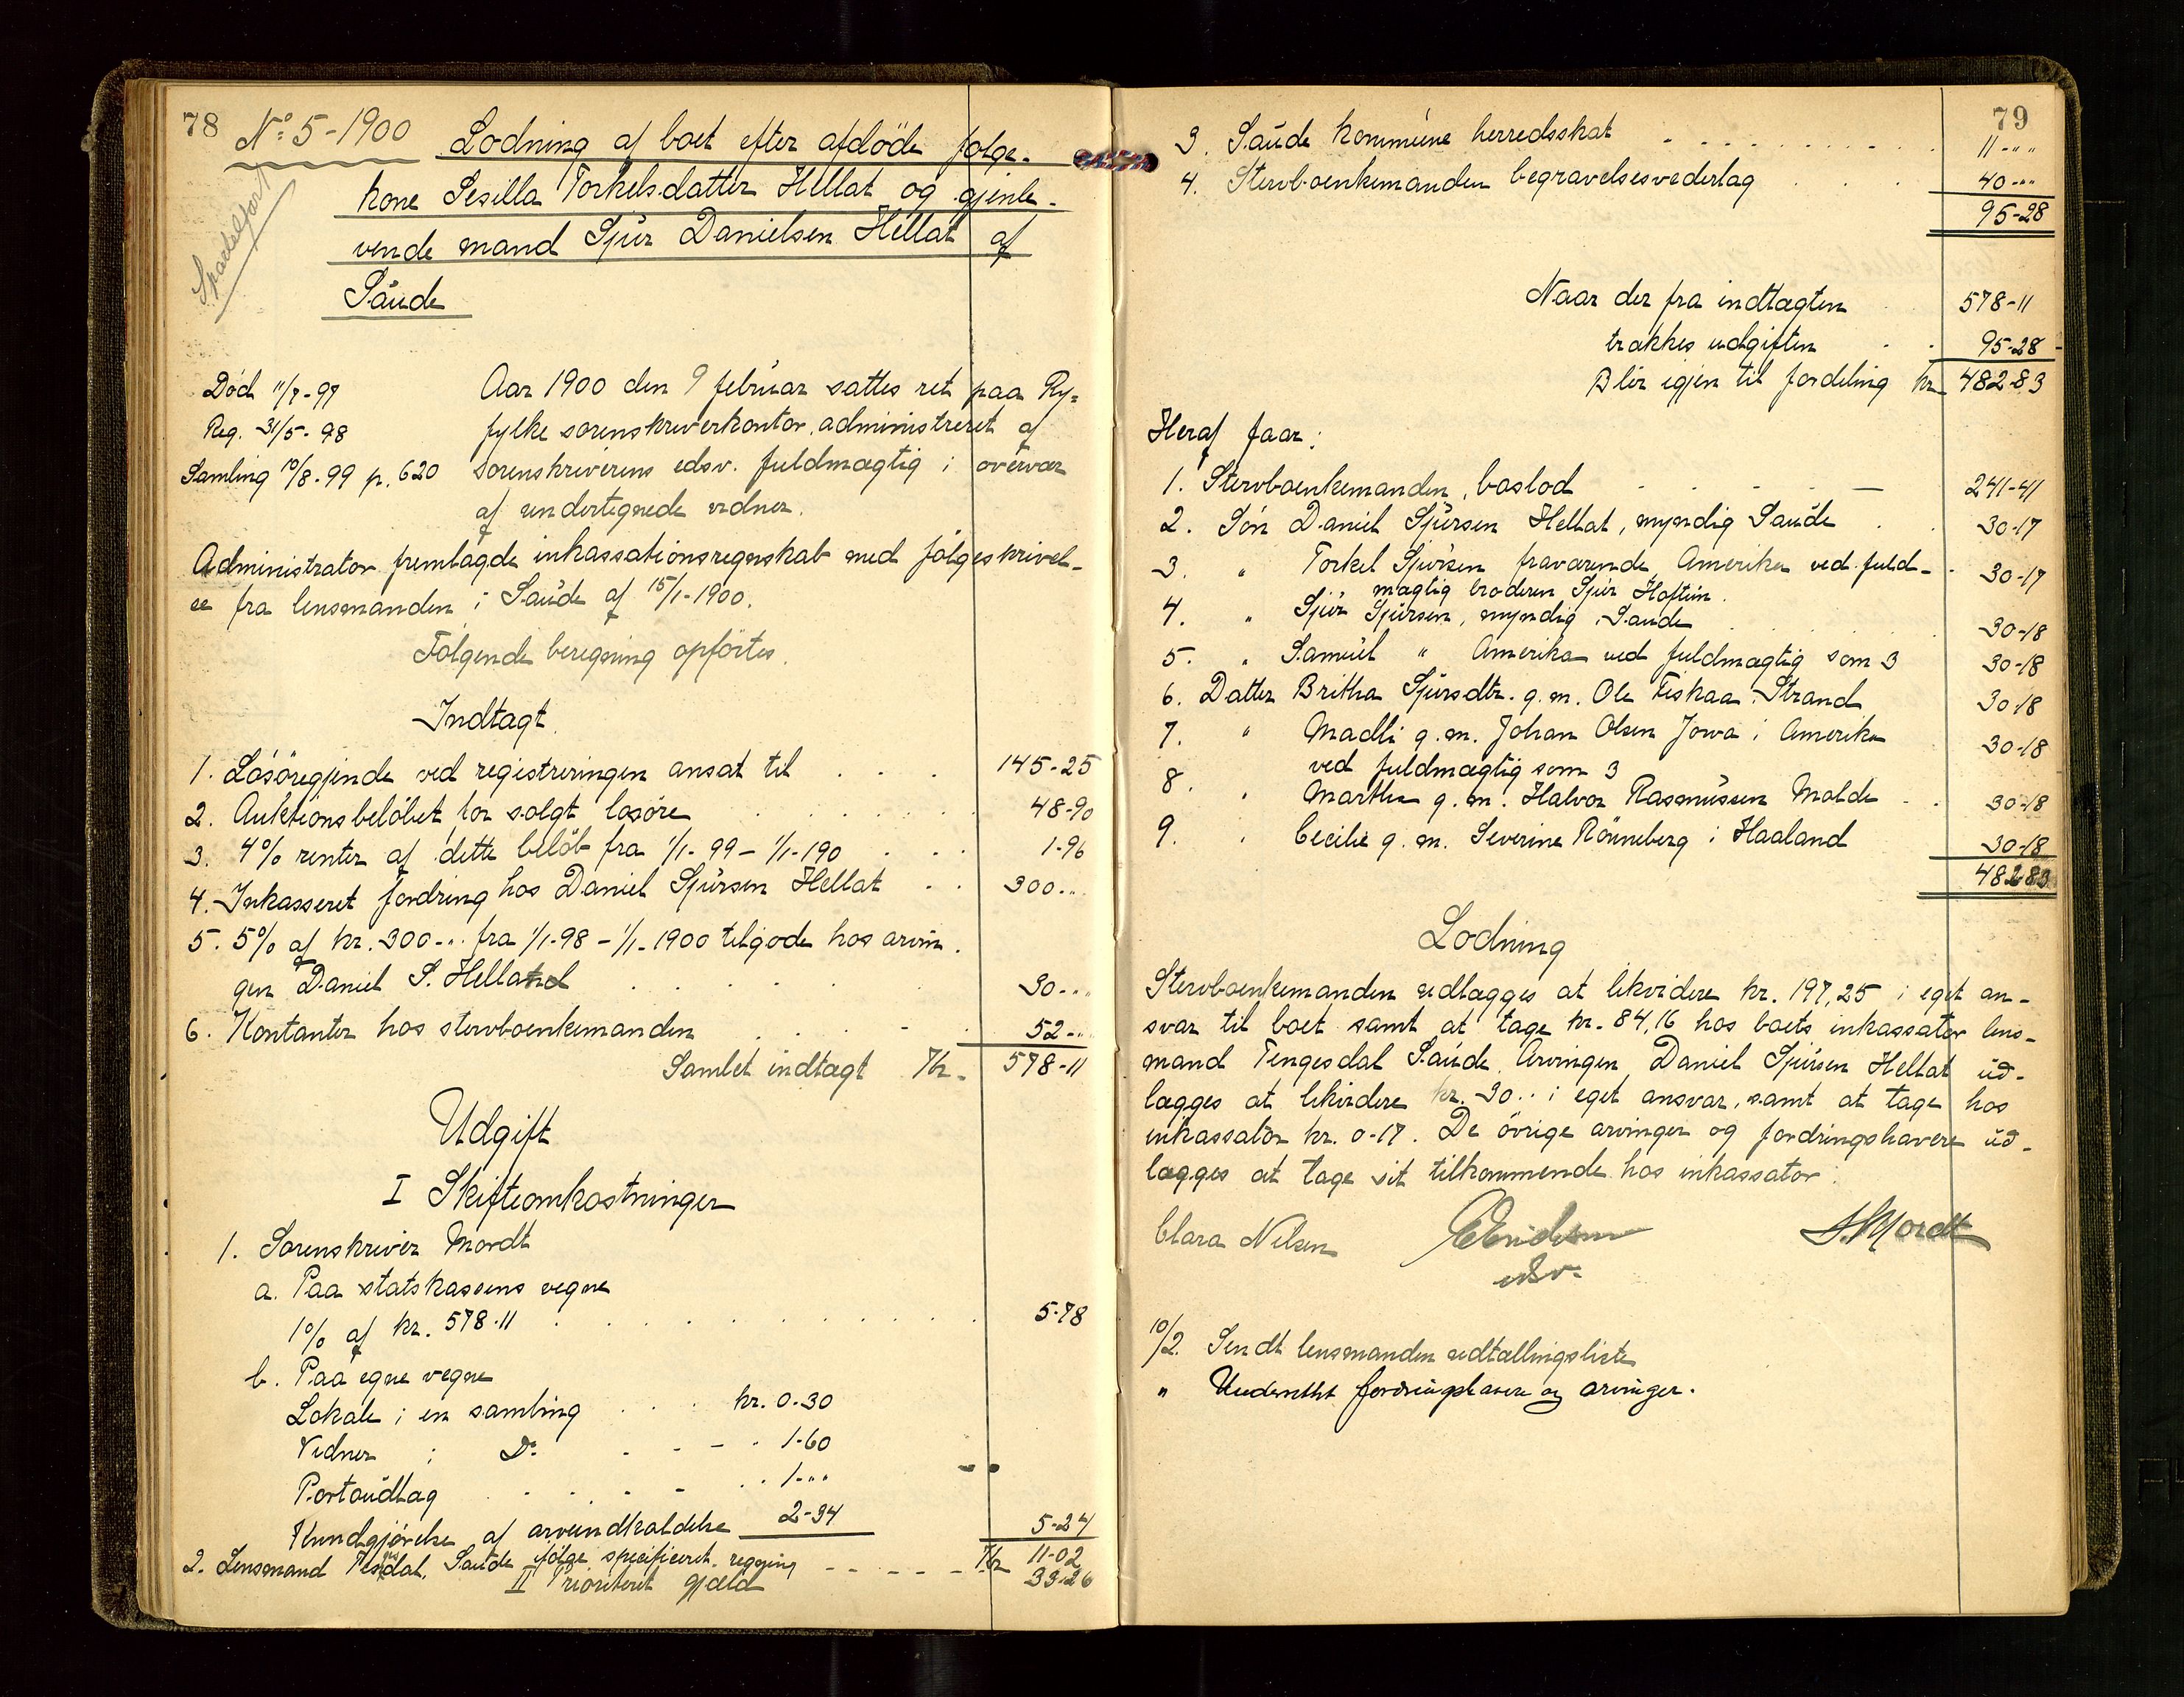 78 No: 5-1900 Lodning af boet efter afdöde følge-
kone Sesilla Torkelsdatter Hellat og gjenle-
vende mand Sjur Danielsen Hellat af
Saude
Død 11/7-97
Reg. 31/5-98
Samling 10/8-99 p. 620
Aar 1900 den 9 februar sattes ret paa Ry-
fylke sorenskriverkontor, administreret af
sorenskriverens edsv. fuldmægtig i overvær
af undertegnede vidner.
Administrator fremlagde inkassationsregnskab med følgeskrivel-
se fra lensmanden i Saude af 15/1-1900.
Følgende beregning opførtes.
Indtægt.
1. Løsøregjenstande ved registreringen ansat til . . . 145-25
2. Auktionsbeløbet for solgt løsøre . . . 48-90
3. 4% renter af dette beløb fra 1/1-99 - 1/1-190 . . . 1-96
4. Inkasseret fordring hos Daniel Sjursen Hellat . . 300-"
5. 5% af kr. 300-" fra 1/1-98 - 1/1-1900 tilgode hos arvin-
gen Daniel S. Helland . . . 30-"
6. Kontanter hos stervboenkemanden . . . 52-"
Samlet indtægt Kr. 578-11
Udgift
I Skifteomkostninger
1. Sorenskriver Mordt
a. Paa statskassens vegne
1% af kr. 578-11 . . . 5-78
b. Paa egne vegne
Lokale i en samling . . . kr. 0-30
Vidner i Do . . . 1-60
Portoudlæg . . . 1-"
Kundgjørelse af arveindkaldelse 2-34 5-24
Kr 11-02
2. Lensmand Tengesdal, Saude ifølge specificeret regning - - - - - 33-26
II Prioriteret gjæld
79
3. Saude kommune herredsskat . . . 11-"
4. Stervboenkemanden begravelsesvederlag . . . 40-"
95-28
Naar der fra indtægten 578-11
trækkes udgiften . . 95-28
Blir igjen til fordeling kr 482-83
Heraf faar:
1. Stervboenkemanden, boslod . . . 241-41
2. Søn Daniel Sjursen Hellat, myndig Saude . . 30-17
3. " Torkel Sjursen fraværende, Amerika ved fuld-
mægtig broderen Sjur Hoftun. 30-17
4. " Sjur Sjursen, myndig, Saude . . . 30-18
5. " Samuel " Amerika ved fuldmægtig som 3 30-18
6. Datter Britha Sjursdtr. g. m. Ole Fiskaa i Strand 30-18
7. " Madli g. m. Johan Olsen Jowa i Amerika
ved fuldmægtig som 3 30-18
8. " Martha g. m. Halvor Rasmussen Molde . . 30-18
9. " Cecilie g. m. Severine Rönneberg i Haaland 30-18
482 83
Lodning
Stervboenkemanden udlægges at likvidere kr. 197,25 i eget an-
svar til boet samt at tage kr. 84,16 hos boets inkassator lens-
mand Tengesdal Saude. Arvingen Daniel Sjursen Hellat ud-
lægges at likvidere kr. 30-" i eget ansvar, samt at tage hos
inkassator kr. 0-17. De øvrige arvinger og fordringshavere ud-
lægges at tage sit tilkommende hos inkassator.
Clara Nilsen
edsv.
Mordt
10/2. Sendt lensmanden udtællingsliste
" Underrettet fordringshavere og arvinger.